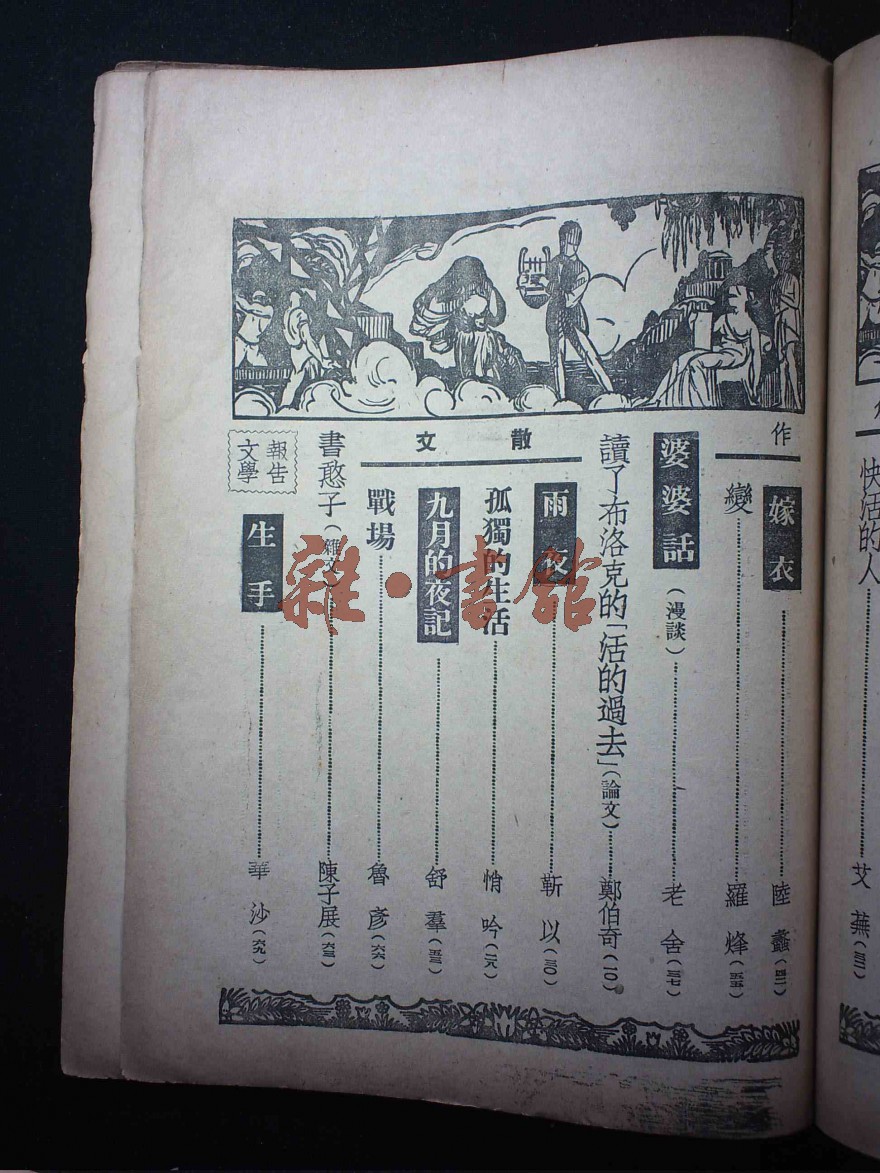 快活的人……艾蕪(三二)
作
嫁衣……陸蠡(四二)
變……羅烽(五五)
婆婆話(漫談)……老舍(三七)
讀了布洛克的「活的過去」(論文)……鄭伯奇(一〇)
散文
雨夜……靳以(三〇)
孤獨的生活……悄吟(二九)
九月的夜記……舒羣(五三)
戰場……魯彥(六六)
書憨子(雜文)……陳子展(六三)
報告文學
生手……華沙(六九)
雜·書館